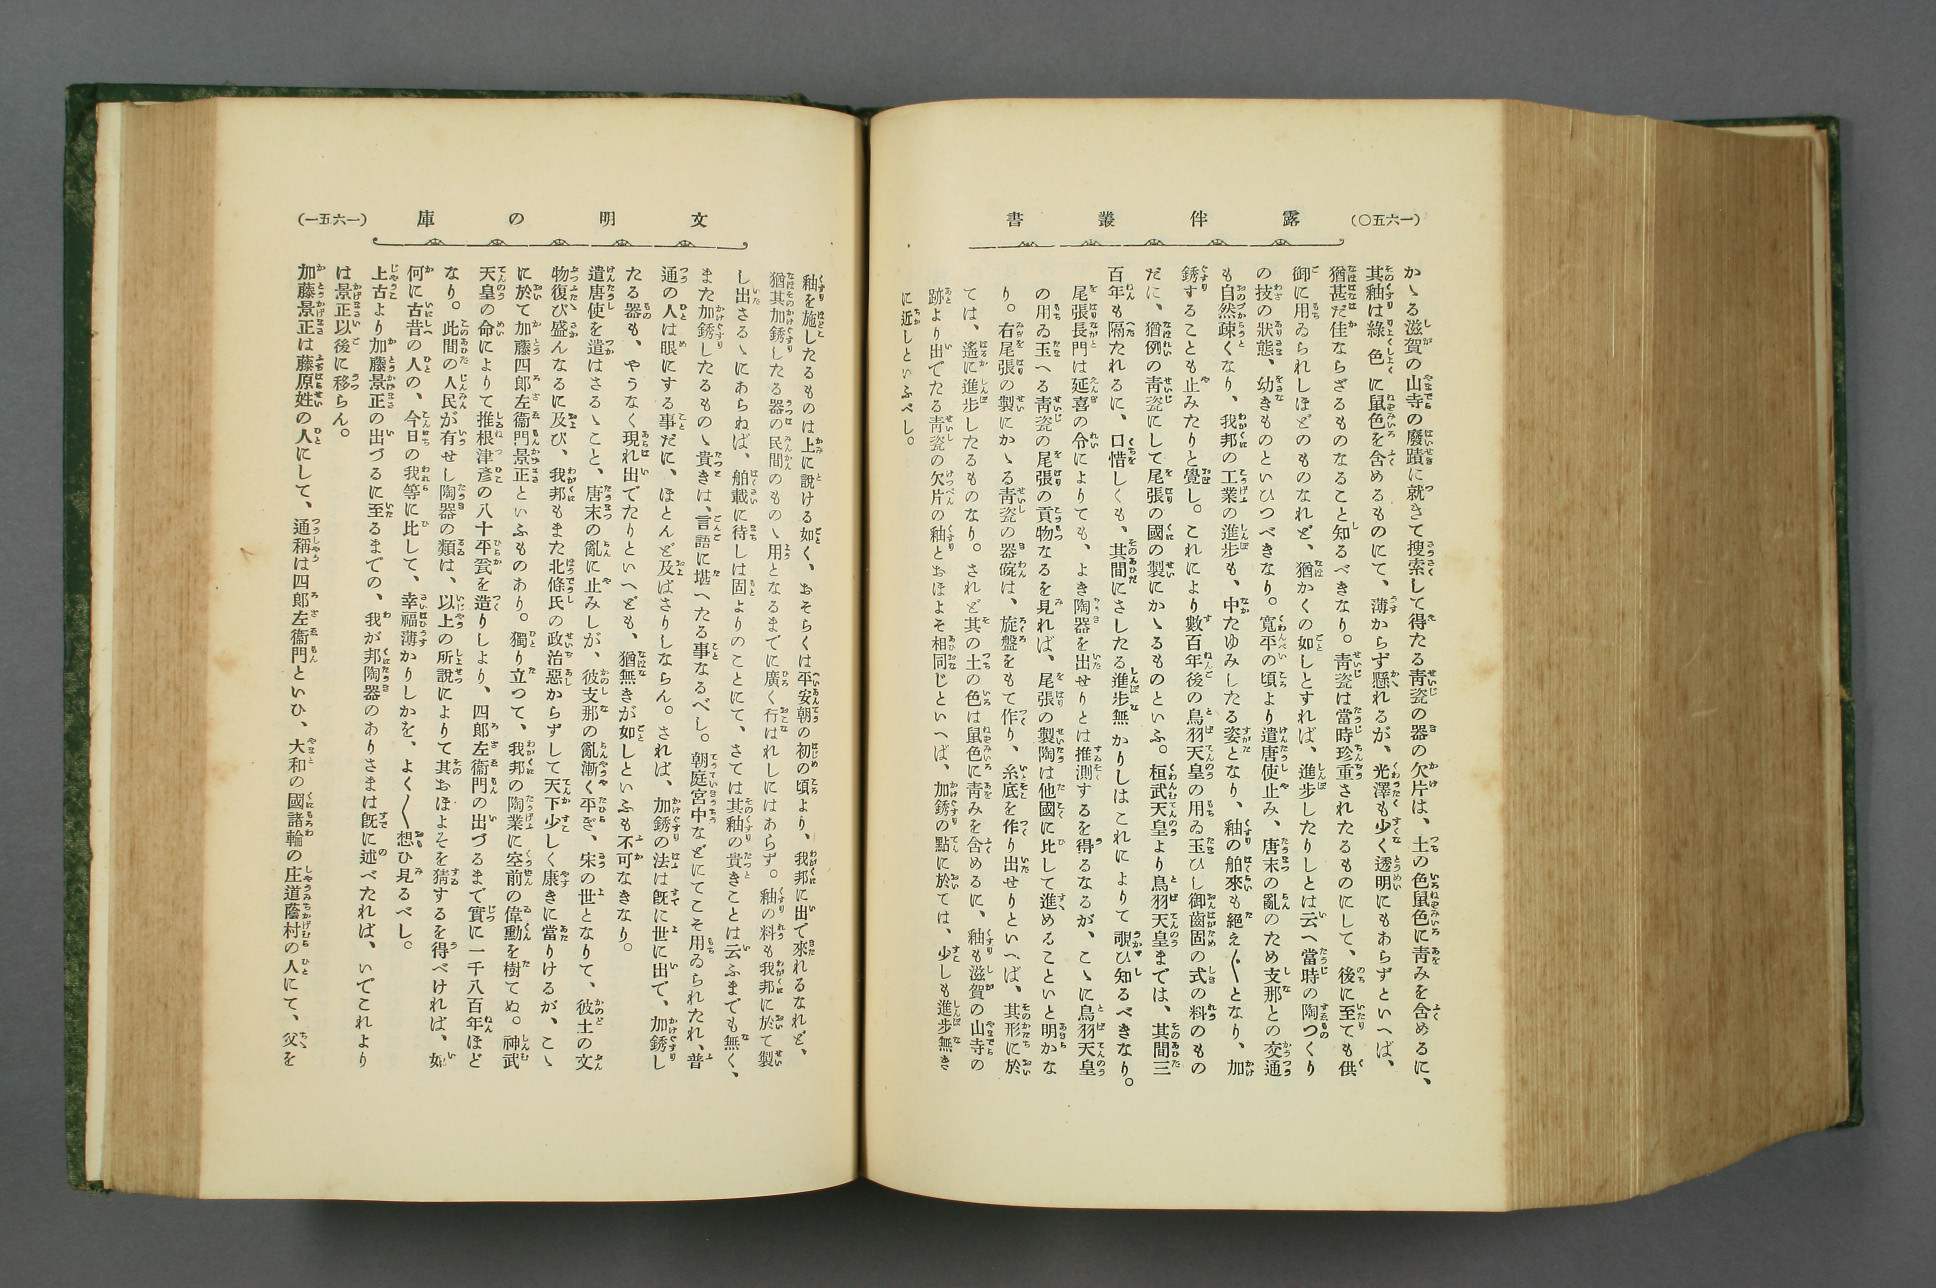 (一六五〇) 露伴叢書
かゝる滋賀の山寺の廢蹟に就きて搜索して得たる靑瓷の器の欠片は、土の色鼠色に靑みを含めるに、
其釉は綠色に鼠色を含めるものにて、薄からず懸れるが、光澤も少く透明にもあらずといへば、
猶甚だ佳ならざるものなること知るべきなり。靑瓷は當時珍重されたるものにして、後に至ても供
御に用ゐられしほどのものなれど、猶かくの如しとすれば、進步したりしとは云へ當時の陶つくり
の技の狀態、幼きものといひつべきなり。寬平の頃より遣唐使止み、唐末の亂のため支那との交通
も自然疎くなり、我邦の工業の進步も、中たゆみしたる姿となり、釉の舶來も絕え〳〵となり、加
銹することも止みたりと覺し。これにより數百年後の鳥羽天皇の用ゐ玉ひし御齒固の式の料のもの
だに、猶例の靑瓷にして尾張の國の製にかゝるものといふ。桓武天皇より鳥羽天皇までは、其間三
百年も隔たれるに、口惜しくも、其間にさしたる進步無かりしはこれによりて覗ひ知るべきなり。
尾張長門は延喜の令によりても、よき陶器を出せりとは推測するを得るなるが、こゝに鳥羽天皇
の用ゐ玉へる靑瓷の尾張の貢物なるを見れば、尾張の製陶は他國に比して進めることいと明かな
り。右尾張の製にかゝる靑瓷の器碗は、旋盤をもて作り、糸底を作り出せりといへば、其形に於
ては、遙に進步したるものなり。されど其の土の色は鼠色に靑みを含めるに、釉も滋賀の山寺の
跡より出でたる靑瓷の欠片の釉とおほよそ相同じといへば、加銹の點に於ては、少しも進步無き
に近しといふべし。
文明の庫 (一六五一)
釉を施したるものは上に說ける如く、おそらくは平安朝の初の頃より、我邦に出て來れるなれど、
猶其加銹したる器の民間のものゝ用となるまでに廣く行はれしにはあらず。釉の料も我邦に於て製
し出さるゝにあらねば、舶載に待しは固よりのことにて、さては其釉の貴きことは云ふまでも無く、
また加銹したるものゝ貴きは、言語に堪へたる事なるべし。朝庭宮中などにてこそ用ゐられたれ、普
通の人は眼にする事だに、ほとんど及ばざりしならん。されば、加銹の法は既に世に出で、加銹し
たる器も、やうなく現れ出でたりといへども、猶無きが如しといふも不可なきなり。
遣唐使を遣はさるゝこと、唐末の亂に止みしが、彼支那の亂漸く平ぎ、宋の世となりて、彼土の文
物復び盛んなるに及び、我邦もまた北條氏の政治惡からずして天下少しく康きに當りけるが、こゝ
に於て加藤四郎左衞門景正といふものあり。獨り立つて、我邦の陶業に空前の偉勳を樹てぬ。神武
天皇の命によりて推根津彥の八十平瓮を造りしより、四郎左衞門の出づるまで實に一千八百年ほど
なり。此間の人民が有せし陶器の類は、以上の所說によりて其おほよそを猜するを得べければ、如
何に古昔の人の、今日の我等に比して、幸福薄かりしかを、よく〳〵想ひ見るべし。
上古より加藤景正の出づるに至るまでの、我が邦陶器のありさまは既に述べたれば、いでこれより
は景正以後に移らん。
加藤景正は藤原姓の人にして、通稱は四郎左衞門といひ、大和の國諸輪の庄道蔭村の人にて、父を